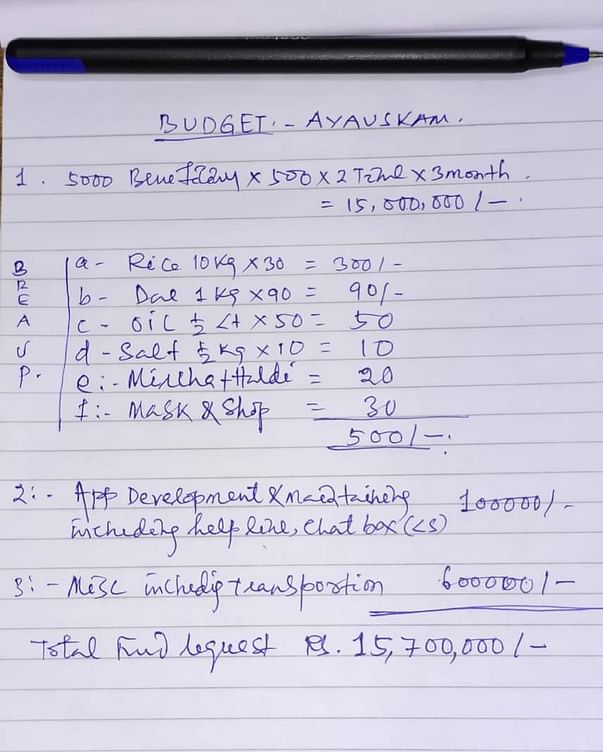 BUDGET:- AYAUSKAM.
1. 5000 Benefidary × 500 × 2 Time × 3 month.
= 15,000,000/-.
BREAUP.
a- Rice 10 Kg × 30 = 300/-
b- Dal 1 Kg × 90 = 90/-
c- OiL ½ Lt × 50 = 50
d- Salt ½ Kg × 10 = 10
e:- Mircha + Haldi = 20
f:- Mask & Shop = 30
500/-.
2:- App Development & maintaining 100000/-
including help line, Chat box (LS)
3:- Misc includig transportion 600000/-
Total Fund request Rs. 15,700,000/-